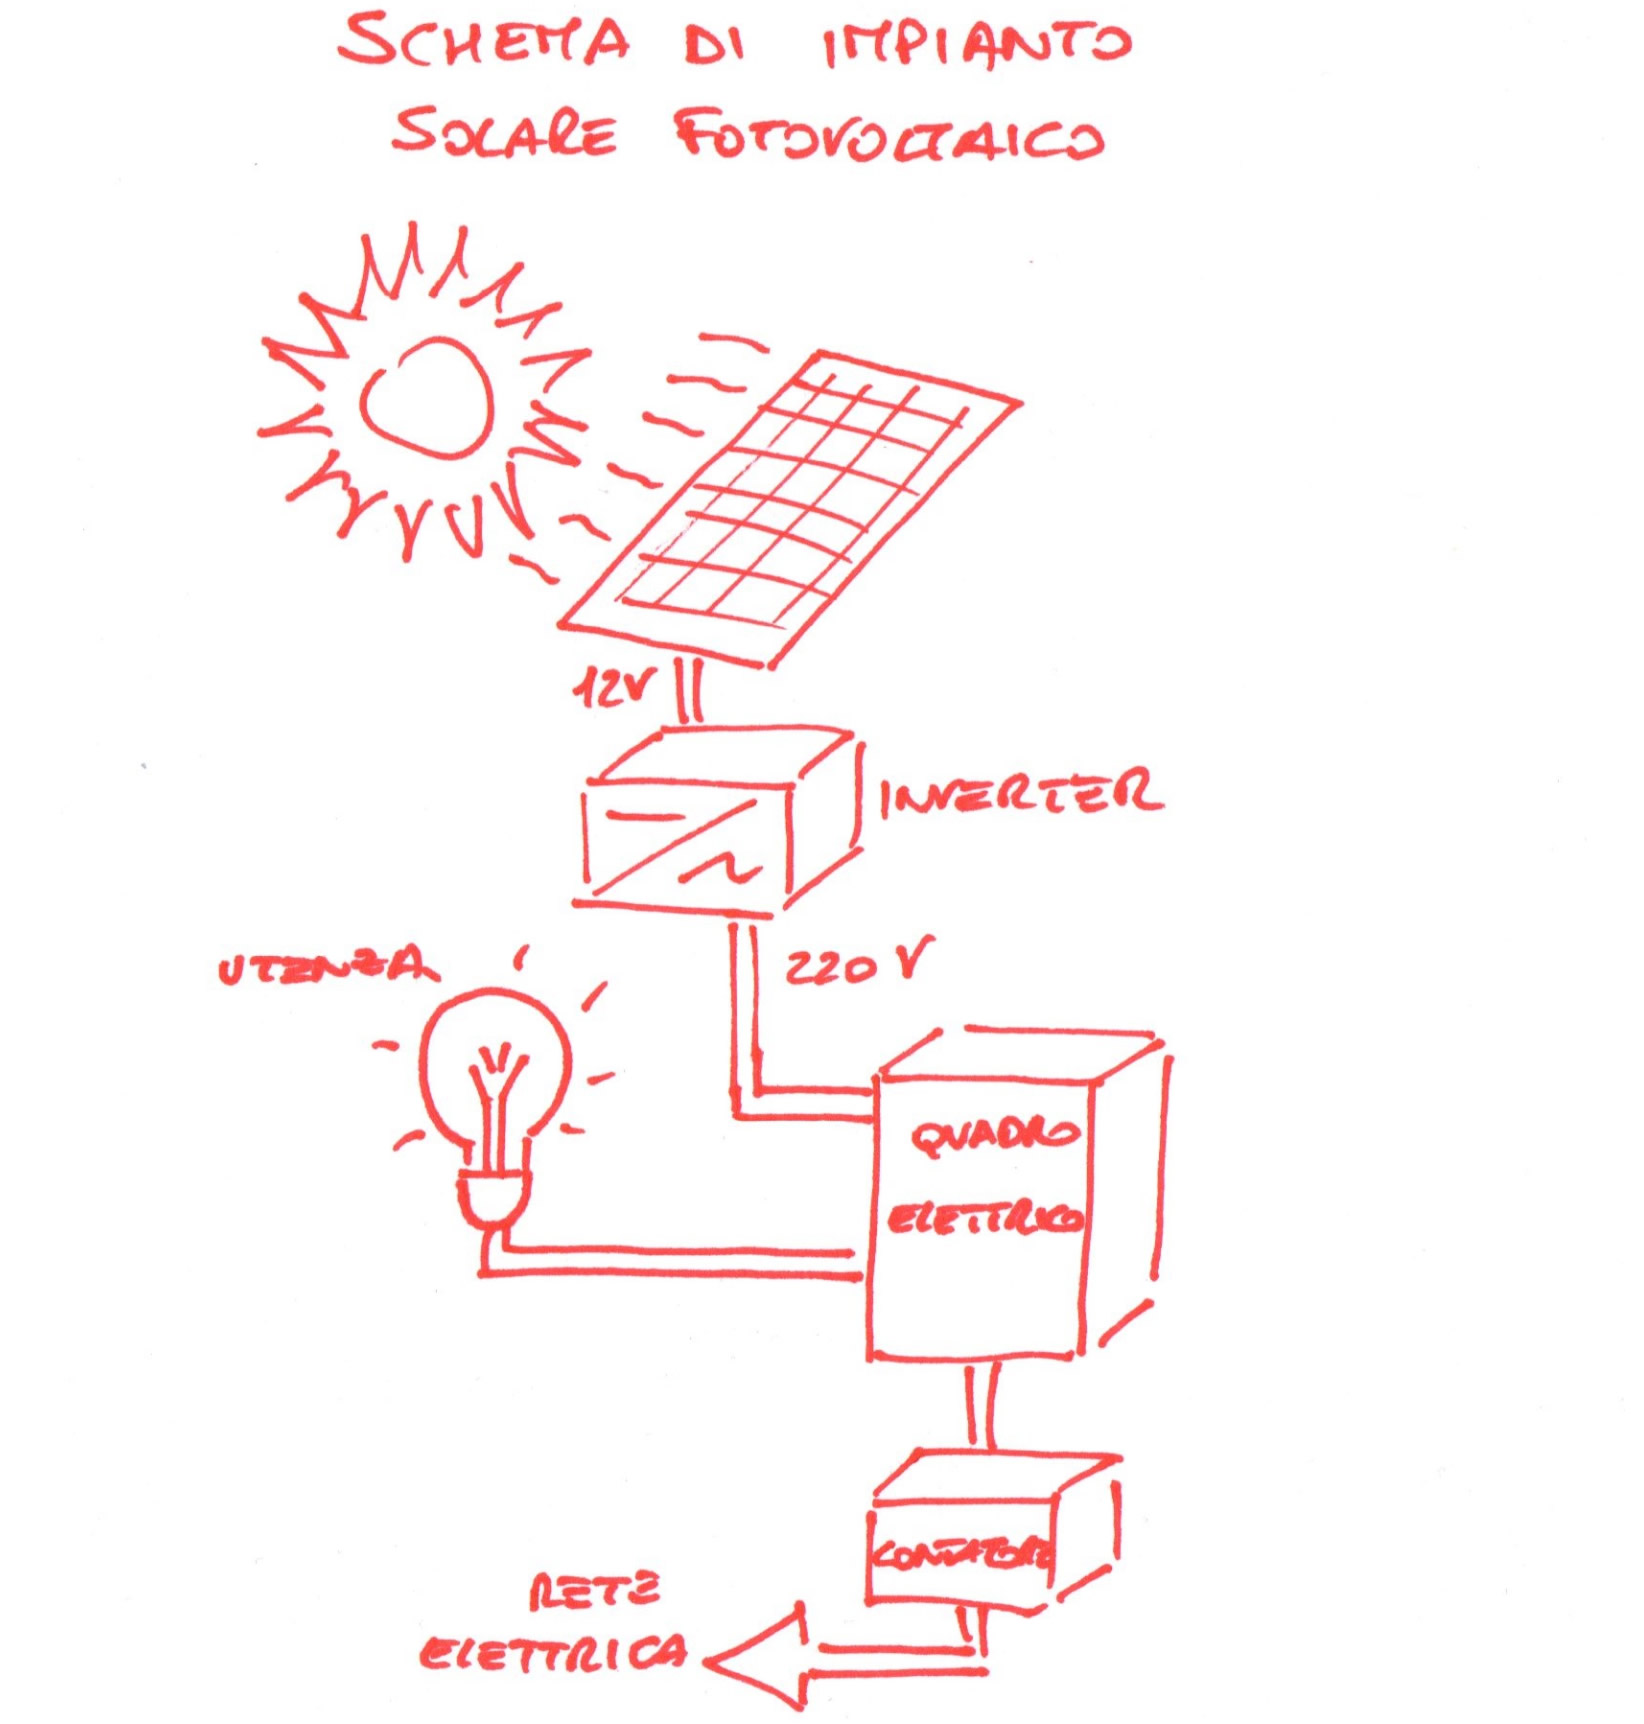 SCHEMA DI IMPIANTO
SOLARE FOTOVOLTAICO
12V
INVERTER
220 V
UTENZA
QUADRO
ELETTRICO
CONTATORE
RETE
ELETTRICA